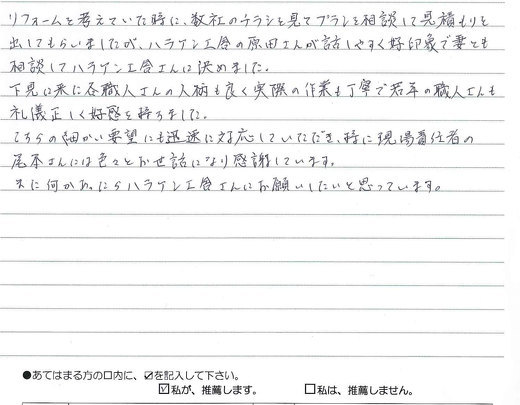 リフォームを考えていた時に、数社のチラシを見てプランを相談して見積もりを
出してもらいましたが、ハラケン工舎の原田さんが話しやすく好印象で妻とも
相談してハラケン工舎さんに決めました。
下見に来た各職人さんの人柄も良く実際の作業も丁寧で若年の職人さんも
礼儀正しく好感を持ちました。
こちらの細かい要望にも迅速に対応していただき、特に現場責任者の
尾本さんには色々とお世話になり感謝しています。
また何かあったらハラケン工舎さんにお願いしたいと思っています。
●あてはまる方の口内に、☑を記入して下さい。
☑私が、推薦します。 □私は、推薦しません。